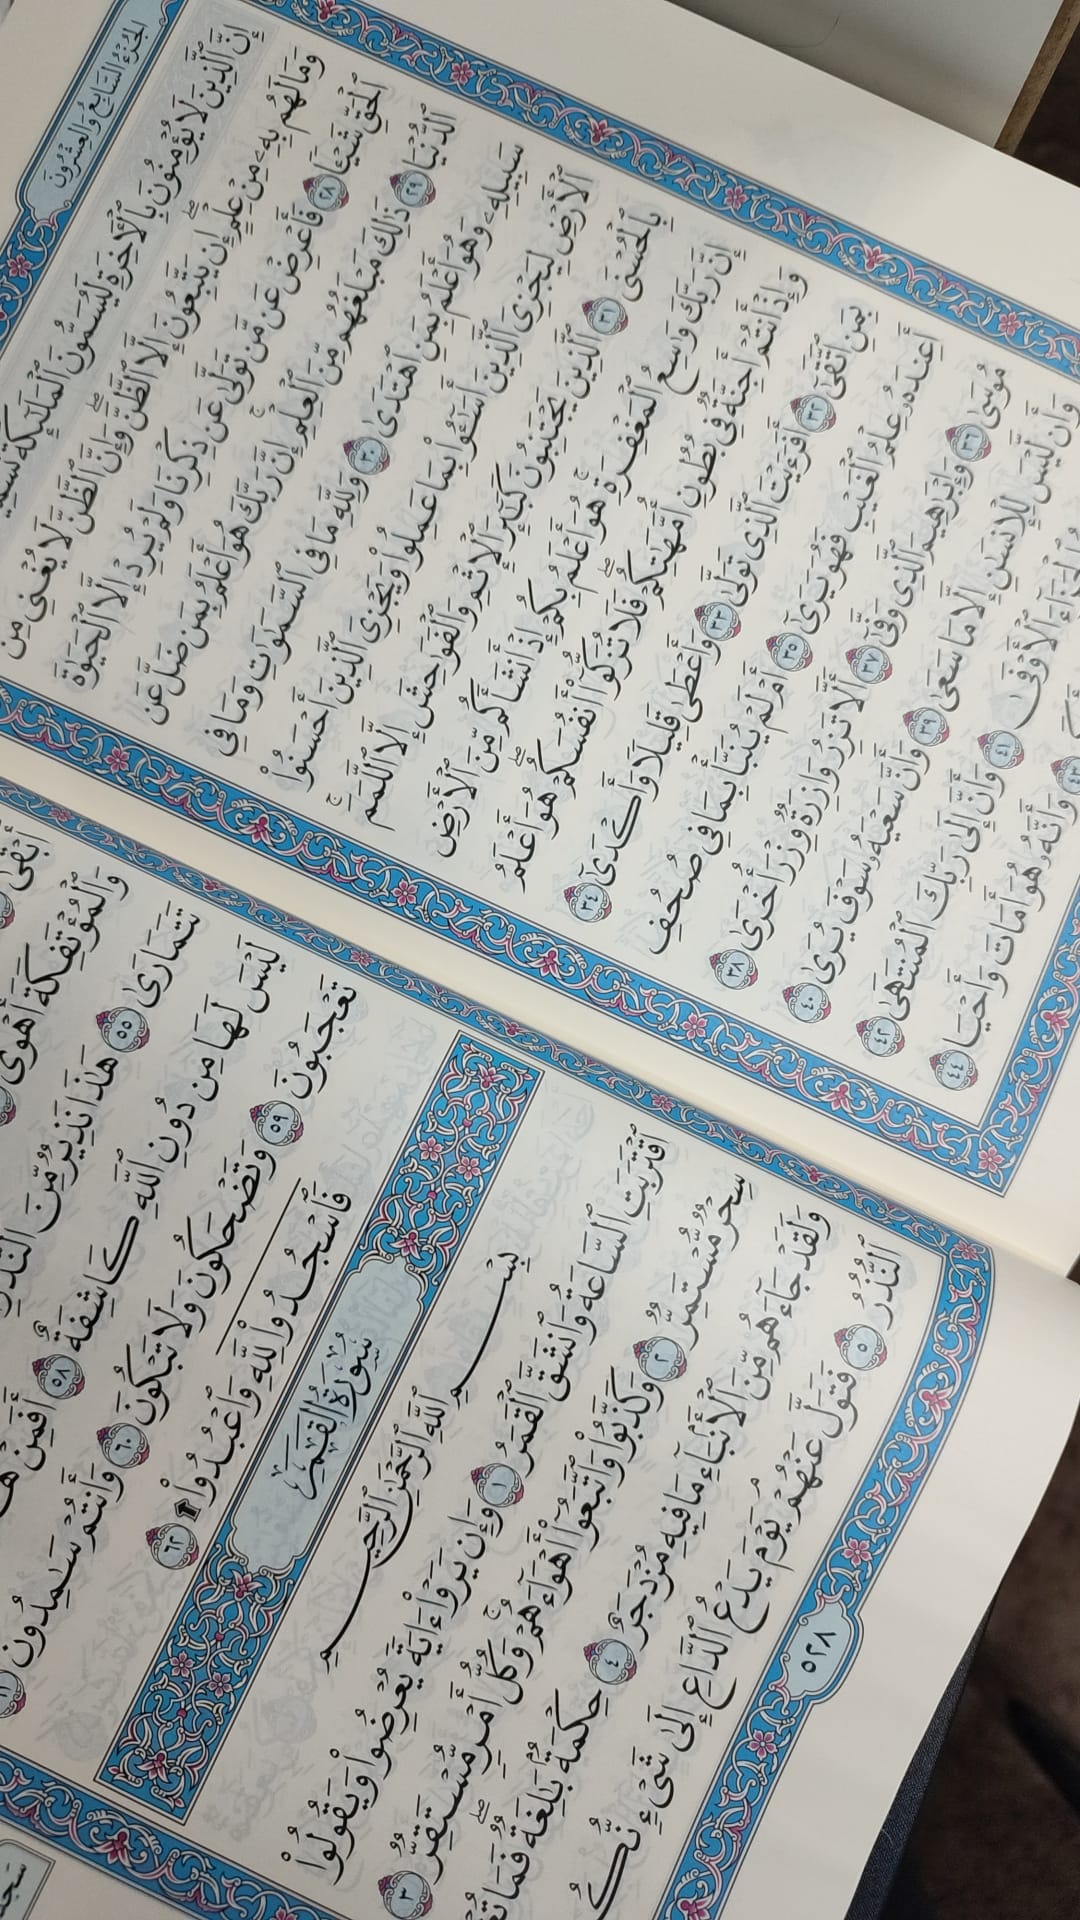 الجُزْءُ السَّابِعُ وَالعِشْرُونَ
إِنَّ ٱلَّذِينَ لَا يُؤْمِنُونَ بِٱلْأَخِرَةِ لَيُسَمُّونَ ٱلْمَلَٰٓئِكَةَ
وَمَا لَهُم بِهِۦ مِنْ عِلْمٍ ۖ إِن يَتَّبِعُونَ إِلَّا ٱلظَّنَّ ۖ وَإِنَّ ٱلظَّنَّ لَا يُغْنِى مِنَ
ٱلْحَقِّ شَيْـًٔا ٢٨ فَأَعْرِضْ عَن مَّن تَوَلَّىٰ عَن ذِكْرِنَا وَلَمْ يُرِدْ إِلَّا ٱلْحَيَوٰةَ
ٱلدُّنْيَا ٢٩ ذَٰلِكَ مَبْلَغُهُم مِّنَ ٱلْعِلْمِ ۚ إِنَّ رَبَّكَ هُوَ أَعْلَمُ بِمَن ضَلَّ عَن
سَبِيلِهِۦ وَهُوَ أَعْلَمُ بِمَنِ ٱهْتَدَىٰ ٣٠ وَلِلَّهِ مَا فِى ٱلسَّمَٰوَٰتِ وَمَا فِى
ٱلْأَرْضِ لِيَجْزِىَ ٱلَّذِينَ أَسَٰٓـُٔوا۟ بِمَا عَمِلُوا۟ وَيَجْزِىَ ٱلَّذِينَ أَحْسَنُوا۟
بِٱلْحُسْنَى ٣١ ٱلَّذِينَ يَجْتَنِبُونَ كَبَٰٓئِرَ ٱلْإِثْمِ وَٱلْفَوَٰحِشَ إِلَّا ٱللَّمَمَ ۚ
إِنَّ رَبَّكَ وَٰسِعُ ٱلْمَغْفِرَةِ ۚ هُوَ أَعْلَمُ بِكُمْ إِذْ أَنشَأَكُم مِّنَ ٱلْأَرْضِ
وَإِذْ أَنتُمْ أَجِنَّةٌ فِى بُطُونِ أُمَّهَٰتِكُمْ ۖ فَلَا تُزَكُّوٓا۟ أَنفُسَكُمْ ۖ هُوَ أَعْلَمُ
بِمَنِ ٱتَّقَىٰٓ ٣٢ أَفَرَءَيْتَ ٱلَّذِى تَوَلَّىٰ ٣٣ وَأَعْطَىٰ قَلِيلًا وَأَكْدَىٰٓ ٣٤
أَعِندَهُۥ عِلْمُ ٱلْغَيْبِ فَهُوَ يَرَىٰٓ ٣٥ أَمْ لَمْ يُنَبَّأْ بِمَا فِى صُحُفِ
مُوسَىٰ ٣٦ وَإِبْرَٰهِيمَ ٱلَّذِى وَفَّىٰٓ ٣٧ أَلَّا تَزِرُ وَازِرَةٌ وِزْرَ أُخْرَىٰ ٣٨
وَأَن لَّيْسَ لِلْإِنسَٰنِ إِلَّا مَا سَعَىٰ ٣٩ وَأَنَّ سَعْيَهُۥ سَوْفَ يُرَىٰ ٤٠
ٱلْجَزَآءَ ٱلْأَوْفَىٰ ٤١ وَأَنَّ إِلَىٰ رَبِّكَ ٱلْمُنتَهَىٰ ٤٢
٤٣ وَأَنَّهُۥ هُوَ أَمَاتَ وَأَحْيَا ٤٤
أَبْقَىٰ
وَٱلْمُؤْتَفِكَةَ أَهْوَىٰ
تَتَمَارَىٰ ٥٥ هَٰذَا نَذِيرٌ مِّنَ ٱلنُّذُرِ
لَيْسَ لَهَا مِن دُونِ ٱللَّهِ كَاشِفَةٌ ٥٨ أَفَمِنْ
تَعْجَبُونَ ٥٩ وَتَضْحَكُونَ وَلَا تَبْكُونَ ٦٠ وَأَنتُمْ سَٰمِدُونَ ٦١
فَٱسْجُدُوا۟ لِلَّهِ وَٱعْبُدُوا۟ ٦٢
سُورَةُ القَمَرِ
بِسْمِ ٱللَّهِ ٱلرَّحْمَٰنِ ٱلرَّحِيمِ
ٱقْتَرَبَتِ ٱلسَّاعَةُ وَٱنشَقَّ ٱلْقَمَرُ ١ وَإِن يَرَوْا۟ ءَايَةً يُعْرِضُوا۟ وَيَقُولُوا۟
سِحْرٌ مُّسْتَمِرٌّ ٢ وَكَذَّبُوا۟ وَٱتَّبَعُوٓا۟ أَهْوَآءَهُمْ ۚ وَكُلُّ أَمْرٍ مُّسْتَقِرٌّ ٣
وَلَقَدْ جَآءَهُم مِّنَ ٱلْأَنۢبَآءِ مَا فِيهِ مُزْدَجَرٌ ٤ حِكْمَةٌۢ بَٰلِغَةٌ ۖ فَمَا
ٱلنُّذُرُ ٥ فَتَوَلَّ عَنْهُمْ ۘ يَوْمَ يَدْعُ ٱلدَّاعِ إِلَىٰ شَىْءٍ نُّكُرٍ
٥٢٨